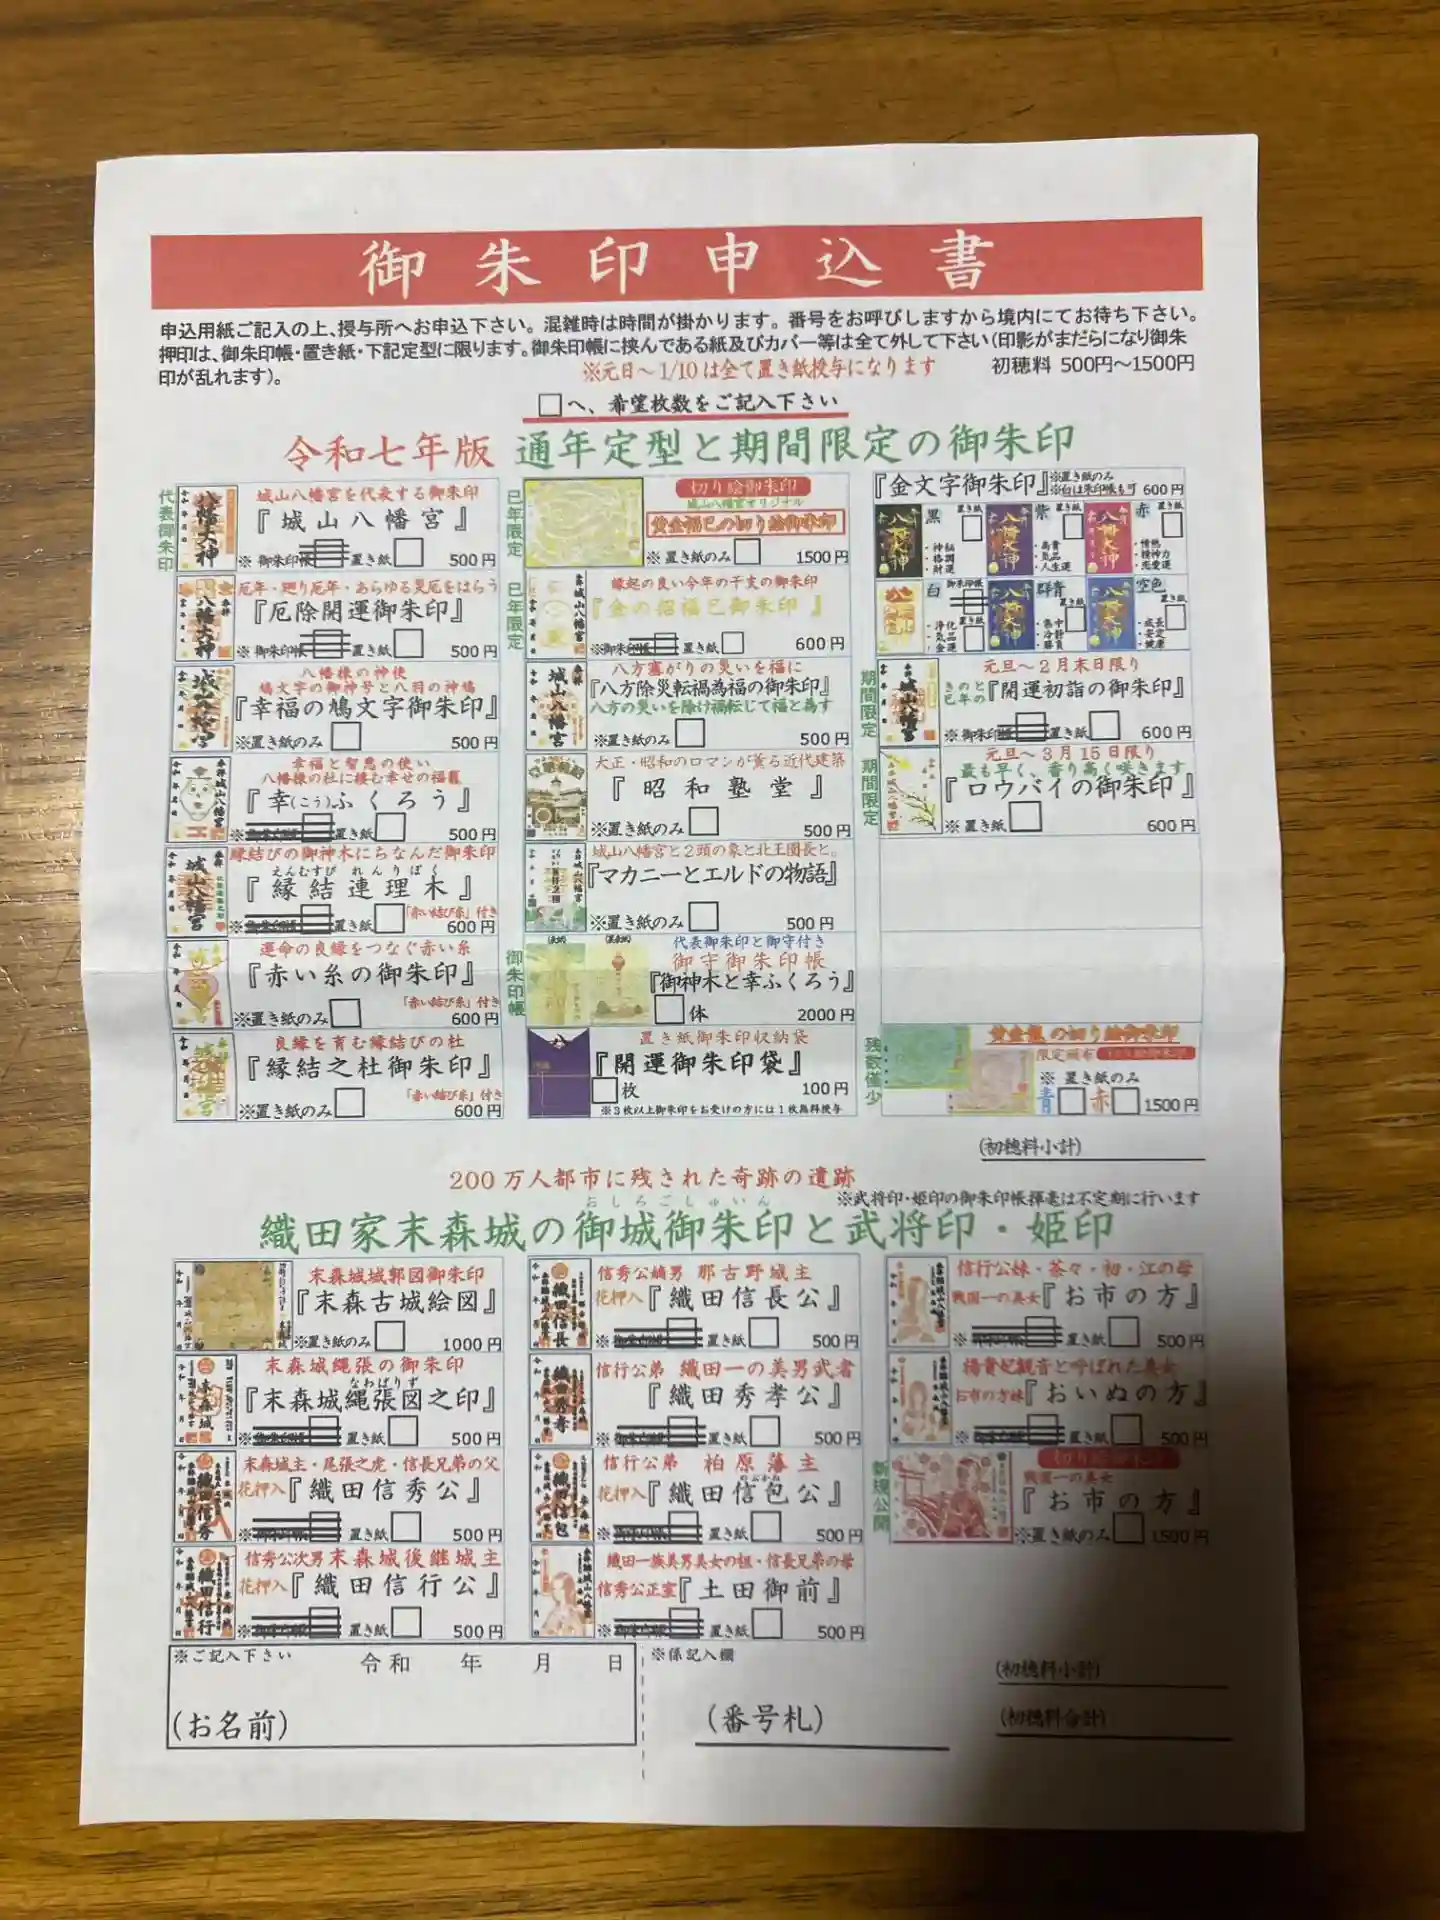 御朱印申込書
申込用紙ご記入の上、授与所へお申込下さい。混雑時は時間が掛かります。番号をお呼びしますから境内にてお待ち下さい。
押印は、御朱印帳・置き紙・下記定型に限ります。御朱印帳に挟んである紙及びカバー等は全て外して下さい(印影がまだらになり御朱
印が乱れます)。
※元日～1/10は全て置き紙授与になります
初穂料 500円～1500円
□へ、希望枚数をご記入下さい
令和七年版 通年定型と期間限定の御朱印
代表御朱印
城山八幡宮を代表する御朱印
『城山八幡宮』
※御朱印帳 置き紙 500円
厄年・廻り厄年・あらゆる災厄をはらう
『厄除開運御朱印』
※御朱印帳 置き紙 500円
八幡様の神使
鳩文字の御神号と八羽の神鳩
『幸福の鳩文字御朱印』
※置き紙のみ 500円
幸福と智恵の使い
八幡様の杜に棲む幸せの福籠
『幸(こう)ふくろう』
置き紙 500円
縁結びの御神木にちなんだ御朱印
えんむすび れんりぼく
『縁結連理木』
「赤い結び糸」付き
置き紙 600円
運命の良縁をつなぐ赤い糸
『赤い糸の御朱印』
「赤い結び糸」付き
※置き紙のみ 600円
良縁を育む縁結びの杜
『縁結之杜御朱印』
「赤い結び糸」付き
※置き紙のみ 600円
巳年限定
切り絵御朱印
城山八幡宮オリジナル
黄金福巳の切り絵御朱印
※置き紙のみ 1500円
巳年限定
縁起の良い今年の干支の御朱印
『金の招福巳御朱印』
※御朱印帳 置き紙 600円
八方塞がりの災いを福に
『八方除災転禍為福の御朱印』
八方の災いを除け福転じて福と為す
※置き紙のみ 500円
大正・昭和のロマンが薫る近代建築
『昭和塾堂』
※置き紙のみ 500円
城山八幡宮と2頭の象と北王園長と。
『マカニーとエルドの物語』
※置き紙のみ 500円
御朱印帳
代表御朱印と御守付き
御守御朱印帳
『御神木と幸ふくろう』
体 2000円
置き紙御朱印収納袋
『開運御朱印袋』
枚 100円
※3枚以上御朱印をお受けの方には1枚無料授与
『金文字御朱印』
※置き紙のみ
※白は朱印帳も可
600円
黒 置き紙
・神秘
・格調
・財運
紫 置き紙
・高貴
・気品
・人生運
赤 置き紙
・情熱
・精神力
・恋愛運
白 御朱印帳 置き紙
・浄化
・気品
・金運
群青 置き紙
・集中
・冷静
・勝負
空色 置き紙
・成長
・安定
・健康
期間限定
元旦～2月末日限り
きのと巳年の『開運初詣の御朱印』
※御朱印帳 置き紙 600円
期間限定
元旦～3月15日限り
最も早く、香り高く咲きます
『ロウバイの御朱印』
※置き紙 600円
残数僅少
黄金龍の切り絵御朱印
限定頒布
※置き紙のみ
青 赤 1500円
(初穂料小計)
200万人都市に残された奇跡の遺跡
※武将印・姫印の御朱印帳揮毫は不定期に行います
おしろごしゅいん
織田家末森城の御城御朱印と武将印・姫印
末森城城郭図御朱印
『末森古城絵図』
※置き紙のみ 1000円
末森城縄張の御朱印
なわばりず
『末森城縄張図之印』
置き紙 500円
末森城主・尾張之虎・信長兄弟の父
花押入『織田信秀公』
置き紙 500円
信秀公次男 末森城後継城主
花押入『織田信行公』
置き紙 500円
信秀公嫡男 那古野城主
花押入『織田信長公』
置き紙 500円
信行公弟 織田一の美男武者
『織田秀孝公』
置き紙 500円
信行公弟 柏原藩主
のぶかね
花押入『織田信包公』
置き紙 500円
織田一族美男美女の祖・信長兄弟の母
信秀公正室『土田御前』
置き紙 500円
信行公妹・茶々・初・江の母
戦国一の美女『お市の方』
置き紙 500円
楊貴妃観音と呼ばれた美女
お市の方妹『おいぬの方』
置き紙 500円
新規公開
戦国一の美女
『お市の方』
※置き紙のみ 1500円
※ご記入下さい
令和 年 月 日
(お名前)
※係記入欄
(番号札)
(初穂料小計)
(初穂料合計)